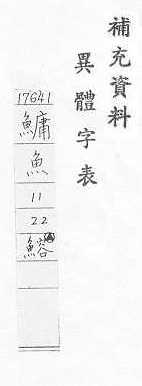 補充資料
異體字表
17641
鱅
魚
11
22
鰫